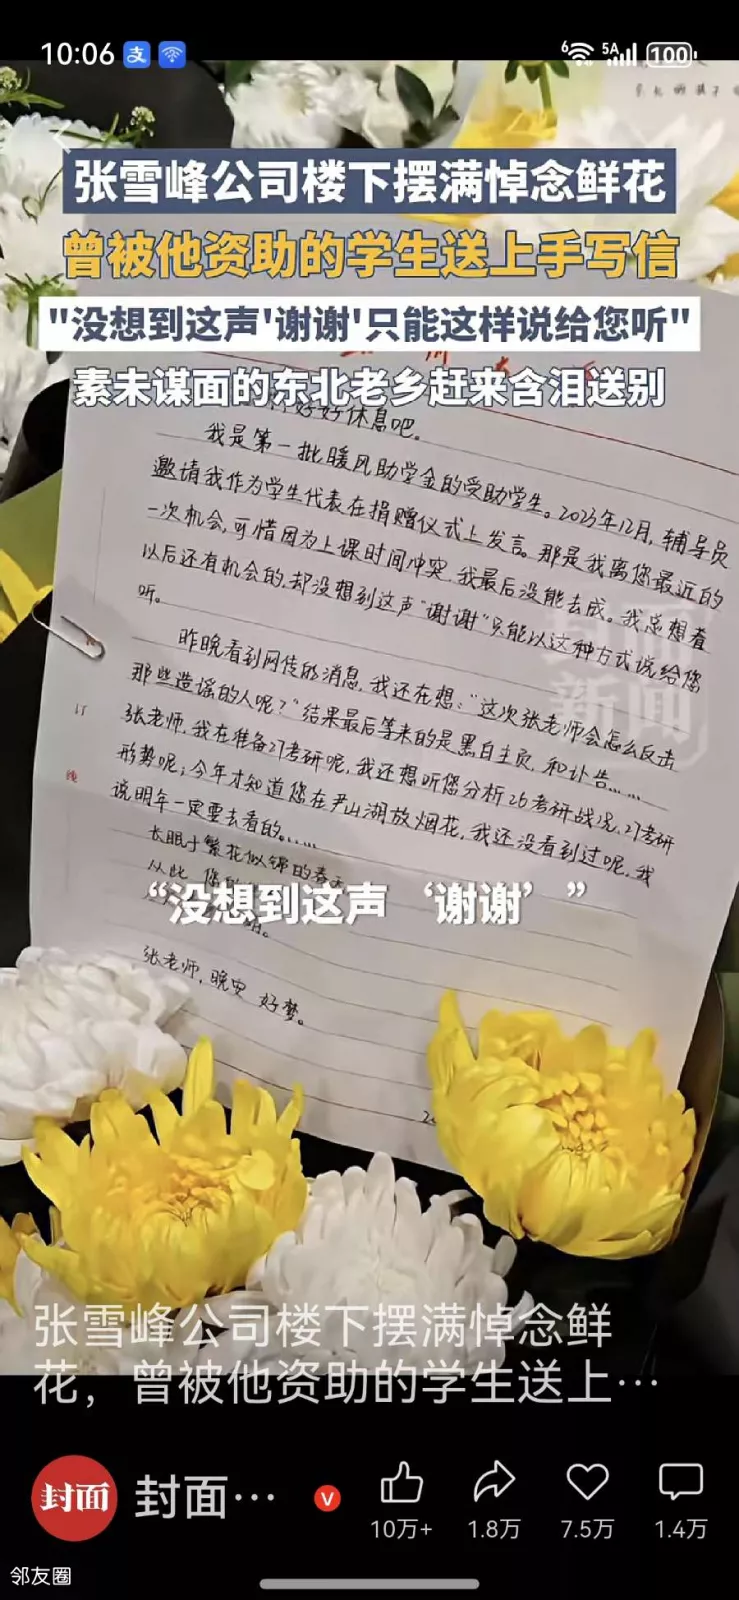 10:06
支
6
5A
100
张雪峰公司楼下摆满悼念鲜花
曾被他资助的学生送上手写信
"没想到这声'谢谢'只能这样说给您听"
素未谋面的东北老乡赶来含泪送别
好好休息吧。
我是第一批暖风助学金的受助学生。2023年12月,辅导员
邀请我作为学生代表在捐赠仪式上发言。那是我离您最近的
一次机会,可惜因为上课时间冲突,我最后没能去成。我总想着
以后还有机会的,却没想到这声"谢谢"只能以这种方式说给您
听。
昨晚看到网传的消息,我还在想:"这次张老师会怎么反击
那些造谣的人呢?"结果最后等来的是黑白主页,和讣告……
张老师,我在准备27考研呢,我还想听您分析26考研战况,27考研
形势呢;今年才知道您在尹山湖放烟花,我还没看到过呢,我
说明年一定要去看的……
长眠于繁花似锦的春天
从此 您
张老师,晚安 好梦。
订
线
封面
新闻
“没想到这声‘谢谢’”
张雪峰公司楼下摆满悼念鲜
花，曾被他资助的学生送上…
封面
封面…
V
10万+
1.8万
7.5万
1.4万
邻友圈